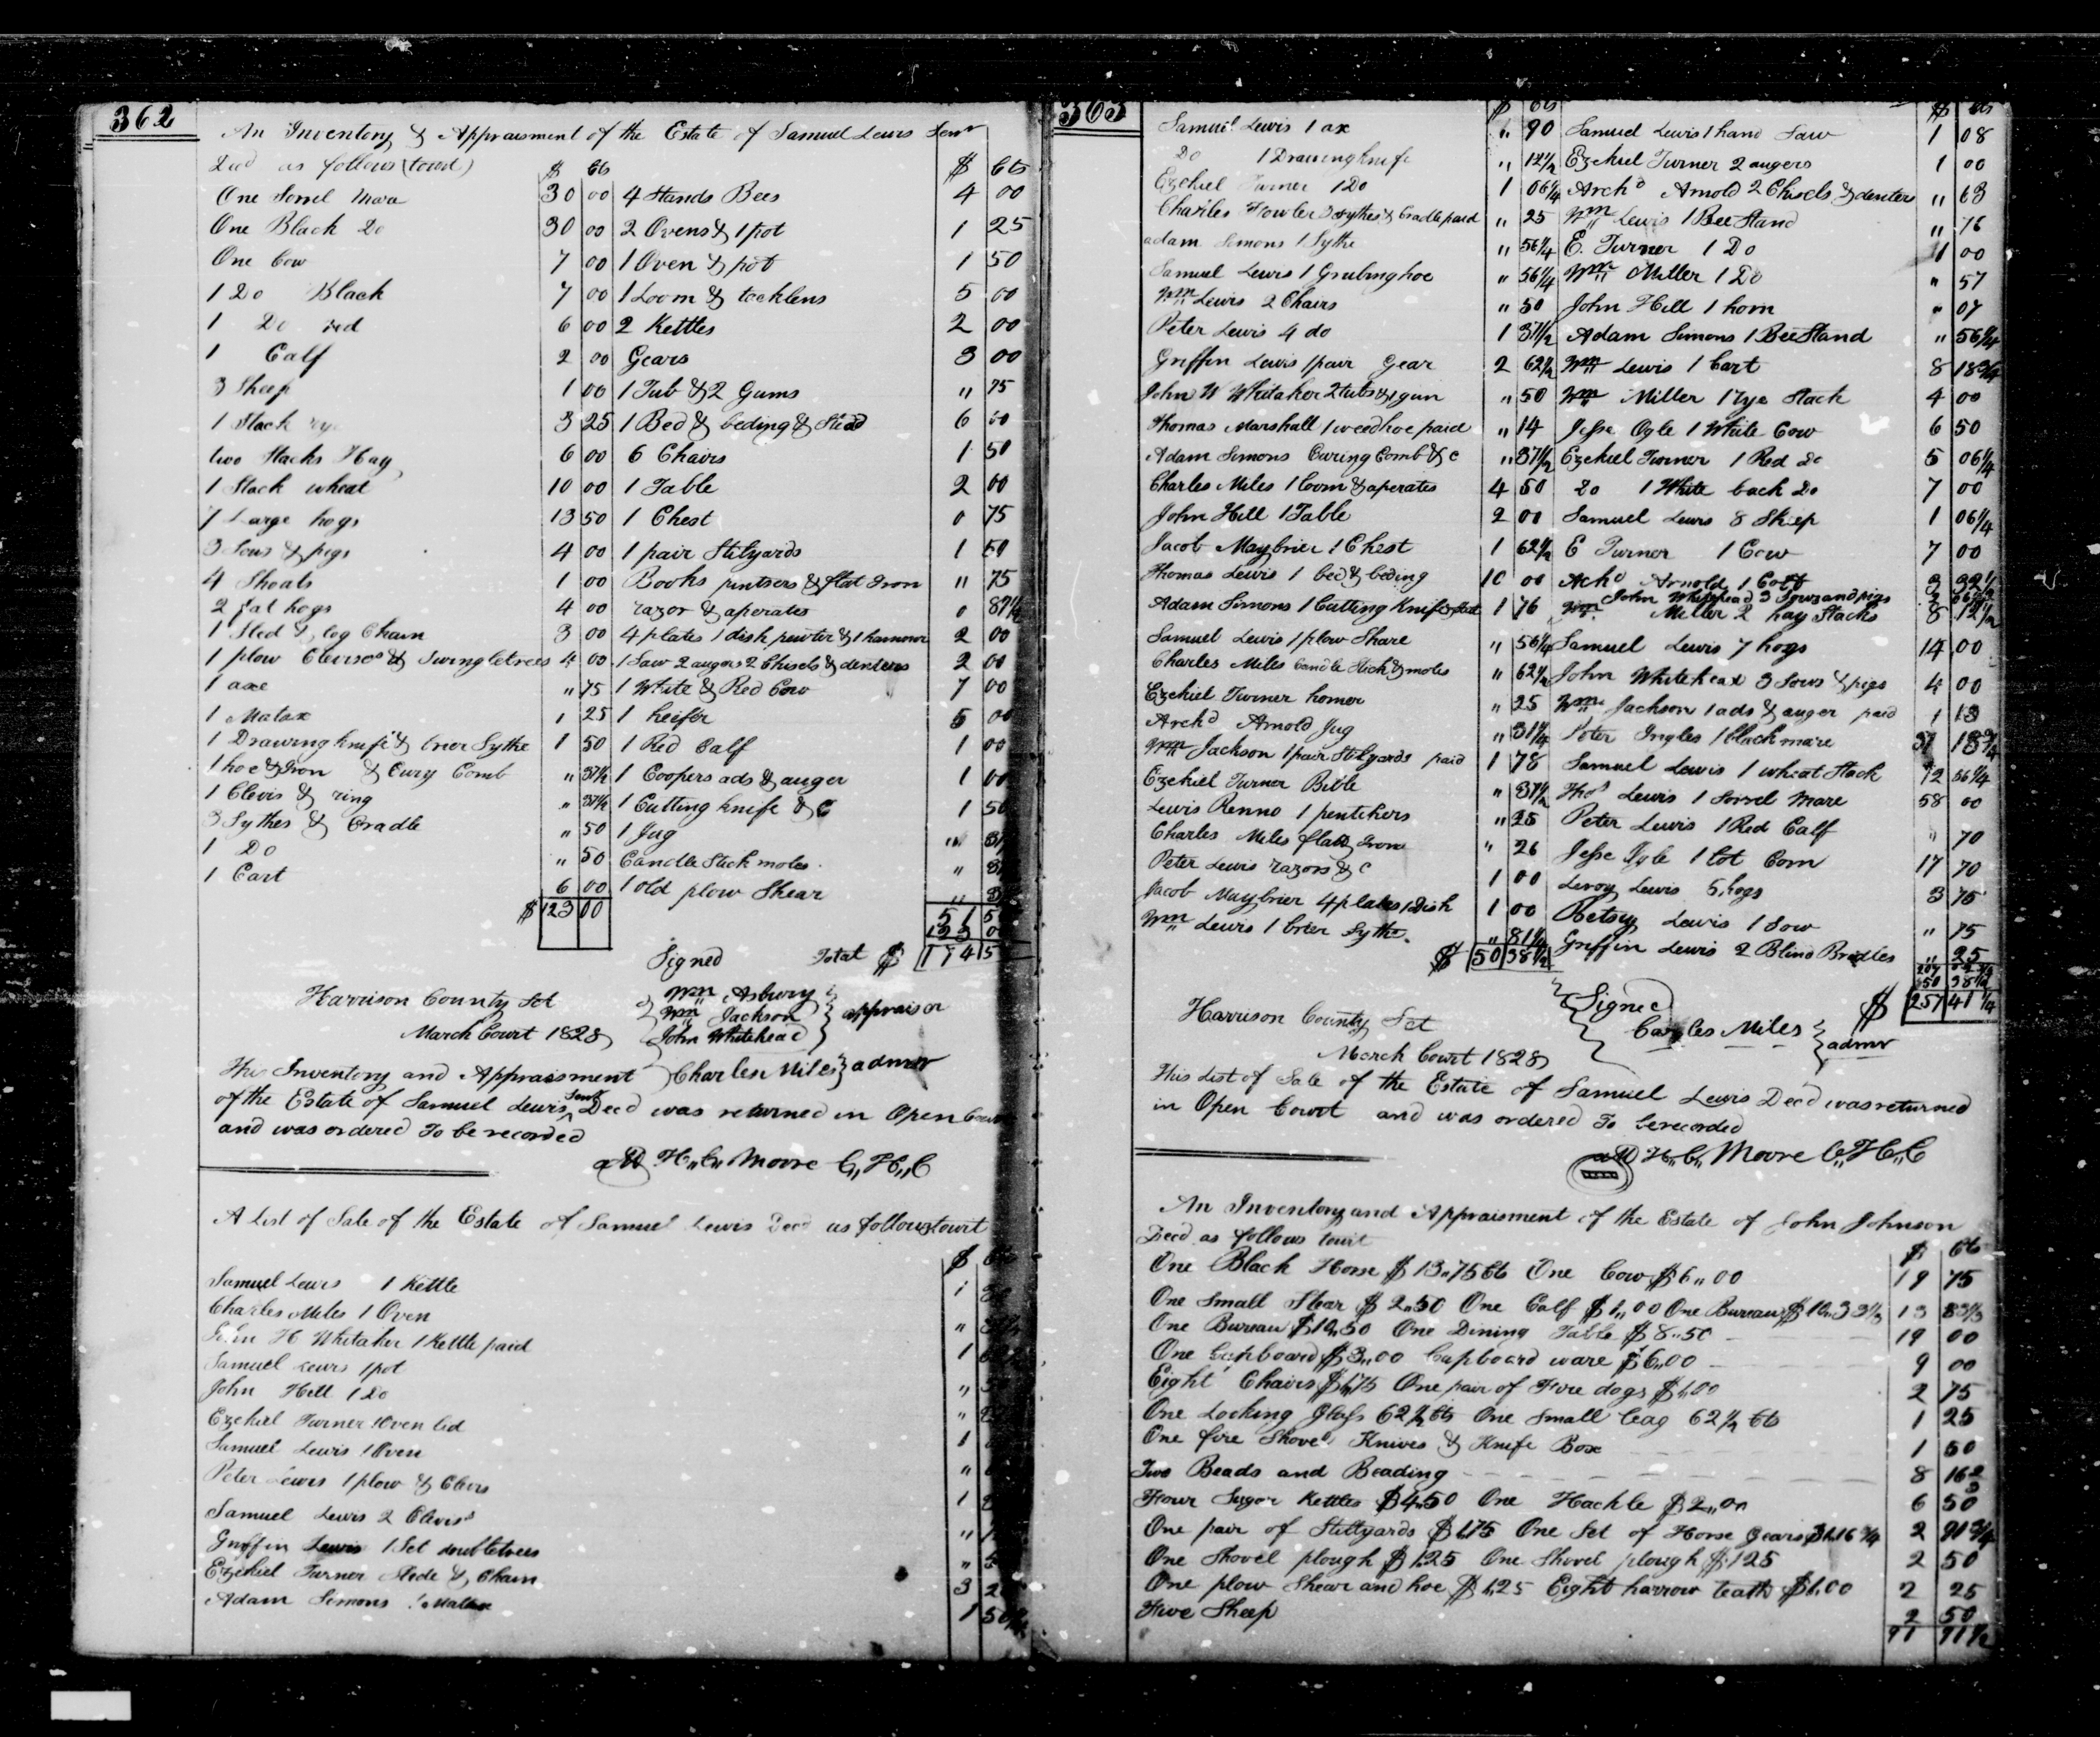 362
An Inventory & Appraisment of the Estate of Samuel Lewis Senr
Decd as follows (towit)
$ Cts
One Sorrel Mare 30 00
One Black Do 30 00
One Cow 7 00
1 Do Black 7 00
1 Do red 6 00
1 Calf 2 00
3 Sheep 1 00
1 Stack rye 3 25
two Stacks Hay 6 00
1 Stack wheat 10 00
7 Large hogs 13 50
3 Sows & pigs 4 00
4 Shoats 1 00
2 Fat hogs 4 00
1 Sled & log Chain 3 00
1 plow Clevises & Swingletrees 4 00
1 axe " 75
1 Matax 1 25
1 Drawing knife & brier Sythe 1 50
1 hoe & Iron & Cury Comb " 37½
1 Clevis & ring " 37½
3 Sythes & Cradle " 50
1 Do " 50
1 Cart 6 00
$ 123 00
$ Cts
4 Stands Bees 4 00
2 Ovens & 1 pot 1 25
1 Oven & pot 1 50
1 Loom & tacklens 5 00
2 Kettles 2 00
Gears 3 00
1 Tub & 2 Gums " 75
1 Bed & beding & Stead 6 00
6 Chairs 1 50
1 Table 2 00
1 Chest 0 75
1 pair Stilyards 1 50
Books & flat Iron " 75
razor & aperates 0 87½
4 plates 1 dish pewter & 1 hamour 2 00
1 Saw 2 augers 2 Chisels & denters 2 00
1 White & Red Cow 7 00
1 heifer 5 00
1 Red Calf 1 00
1 Coopers ads & auger 1 00
1 Cutting knife & C 1 50
1 Jug "
Candle Stick moles "
1 old plow Shear "
51
123
Total $ 174
Signed
Wm Asbury
Wm Jackson
John Whitehead
appraisor
Charles Miles admr
Harrison County Sct
March Court 1828
This Inventory and Appraisment
of the Estate of Samuel Lewis Senr Decd was returned in Open Court
and was ordered To be recorded
att H,,C,, Moore C,,H,,C
A List of Sale of the Estate of Samuel Lewis Decd as follows towit
$ Cts
Samuel Lewis 1 Kettle 1
Charles Miles 1 Oven "
John H Whitaker 1 Kettle paid 1
Samuel Lewis 1 pot "
John Hill 1 Do "
Ezekiel Turner 1 Oven lid 1
Samuel Lewis 1 Oven "
Peter Lewis 1 plow & Clevis 1
Samuel Lewis 2 Clevises "
Griffin Lewis 1 Set doubletrees "
Ezekiel Turner Slede & Chain 3
Adam Simons 1 Matax 1
363
$ Cts
Samuel Lewis 1 ax " 90
Do 1 Drawing knife " 12½
Ezekiel Turner 1 Do 1 06¼
Charles Fowler 3 sythes & Cradle paid " 25
adam Simons 1 Sythe " 56¼
Samuel Lewis 1 Grubing hoe " 56¼
Wm Lewis 2 Chairs " 50
Peter Lewis 4 do 1 37½
Griffin Lewis 1 pair Gear 2 62½
John W Whitaker 2 tubs & 1 gun " 50
Thomas Marshall 1 weed hoe paid " 14
Adam Simons Curing Comb & C " 37½
Charles Miles 1 loom & aperates 4 50
John Hill 1 Table 2 00
Jacob Maybrier 1 Chest 1 62½
Thomas Lewis 1 bed & beding 10 00
Adam Simons 1 Cutting knife & 1 76
Samuel Lewis 1 plow Share " 56¼
Charles Miles Candle Stick & moles " 62½
Ezekiel Turner homer " 25
Archd Arnold Jug " 31¼
Wm Jackson 1 pair Stilyards paid 1 78
Ezekiel Turner Bible " 37½
Lewis Renno 1 pentchers " 25
Charles Miles flatt Irons " 26
Peter Lewis razors & C 1 00
Jacob Maybrier 4 plates 1 Dish 1 00
Wm Lewis 1 brier Sythe " 81¼
$ 50 38½
$ Cts
Samuel Lewis 1 hand Saw 1 08
Ezekiel Turner 2 augers 1 00
Archd Arnold 2 Chisels & denters " 63
Wm Lewis 1 Bee Stand " 76
E. Turner 1 Do 1 00
Wm Miller 1 Do " 57
John Hill 1 horn " 07
Adam Simons 1 Bee Stand " 56¼
Wm Lewis 1 Cart 8 18¾
Wm Miller 1 rye Stack 4 00
Jesse Ogle 1 White Cow 6 50
Ezekiel Turner 1 Red Do 5 06¼
Do 1 White back Do 7 00
Samuel Lewis 8 Sheep 1 06¼
E Turner 1 Cow 7 00
Achd Arnold 1 Colt
John Whitehead 3 Sows and pigs
Wm Miller 2 hay Stacks 8 12½
Samuel Lewis 7 hogs 14 00
John Whitehead 3 Sows & pigs 4 00
Wm Jackson 1 ads & auger paid 1 13
Peter Ingles 1 black mare 37 18¾
Samuel Lewis 1 wheat Stack 12 56¼
Thos Lewis 1 Sorrel Mare 58 00
Peter Lewis 1 Red Calf " 70
Jesse Ogle 1 lot Corn 17 70
Leroy Lewis 5 hogs 3 75
Betsey Lewis 1 Sow " 75
Griffin Lewis 2 Blind Bridles " 25
207
50 38½
$ 257 41¼
Signed
Charles Miles admr
Harrison County Sct
March Court 1828
This List of Sale of the Estate of Samuel Lewis Decd was returned
in Open Court and was ordered To be recorded
att H,,C,, Moore C,,H,,C
An Inventory and Appraisment of the Estate of John Johnson
Decd as follows towit
$ Cts
One Black Horse $13,,75 Cts One Cow $6,,00 19 75
One Small Stear $2,,50 One Calf $1,,00 One Bureau $10,,33⅓ 13 83⅓
One Bureau $10,,50 One Dining Table $8,,50 19 00
One Cupboard $3,,00 Cupboard ware $6,,00 9 00
Eight Chairs $1,,75 One pair of Fire dogs $1,00 2 75
One Looking Glass 62½ Cts One Small leag 62½ Cts 1 25
One fire Shovel Knives & Knife Box 1 50
Two Beads and Beading 8 16⅔
Four Sugar Kettles $4,50 One Hackle $2,,00 6 50
One pair of Stillyards $1,75 One Set of Horse Gears $1,16¾ 2 91¾
One Shovel plough $1,25 One Shovel plough $1,25 2 50
One plow Shear and hoe $1,25 Eight harrow teath $1,00 2 25
Five Sheep 2 50
91 91½